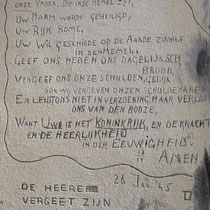 ONZE VADER, DIE INDE HEMEL ZIJT,
UW NAAM WORDE GEHEILIGD,
UW RIJK KOME,
UW WIL GESCHIEDE OP DE AARDE ZOOALS
IN DEN HEMEL.
GEEF ONS HEDEN ONS DAGELIJKSCH
BROOD
VERGEEF ONS ONZE SCHULDEN, GELIJK
OOK WIJ VERGEVEN ONZE SCHULDENAREN
EN LEIDT ONS NIET IN VERZOEKING MAAR VERLOS
ONS VAN DEN BOOZE,
WANT UWE IS HET KONINKRIJK, EN DE KRACHT
EN DE HEERLIJKHEID
IN DER EEUWIGHEID.
AMEN.
26 JAN. 45
DE HEERE
VERGEET ZIJN